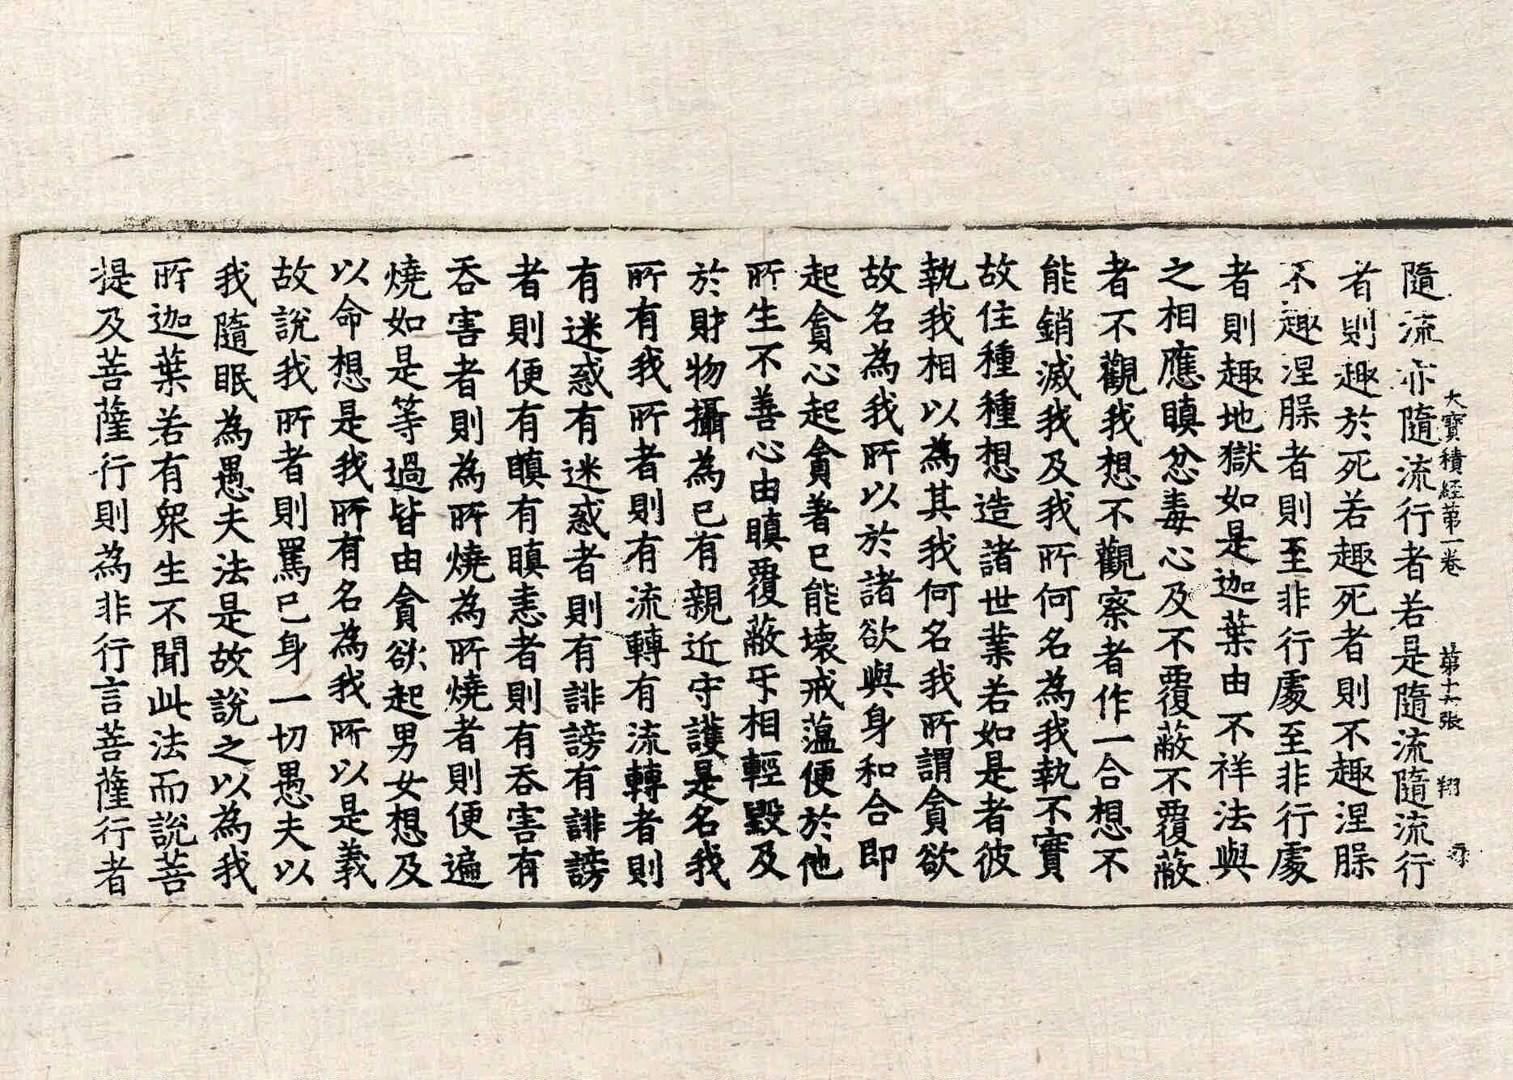 大寶積經第一卷 第十六張 翔
隨流亦隨流行者若是隨流隨流行
者則趣於死若趣死者則不趣涅槃
不趣涅槃者則至非行處至非行處
者則趣地獄如是迦葉由不祥法與
之相應瞋忿毒心及不覆蔽不覆蔽
者不觀我想不觀察者作一合想不
能銷滅我及我所何名為我執不實
故住種種想造諸世業若如是者彼
執我相以為其我何名我所謂貪欲
故名為我所以於諸欲與身和合即
起貪心起貪著已能壞戒蘊便於他
所生不善心由瞋覆蔽互相輕毀及
於財物攝為已有親近守護是名我
所有我所者則有流轉有流轉者則
有迷惑有迷惑者則有誹謗有誹謗
者則便有瞋有瞋恚者則有吞害有
吞害者則為所燒為所燒者則便遍
燒如是等過皆由貪欲起男女想及
以命想是我所有名為我所以是義
故說我所者則罵已身一切愚夫以
我隨眠為愚夫法是故說之以為我
所迦葉若有眾生不聞此法而說菩
提及菩薩行則為非行言菩薩行者